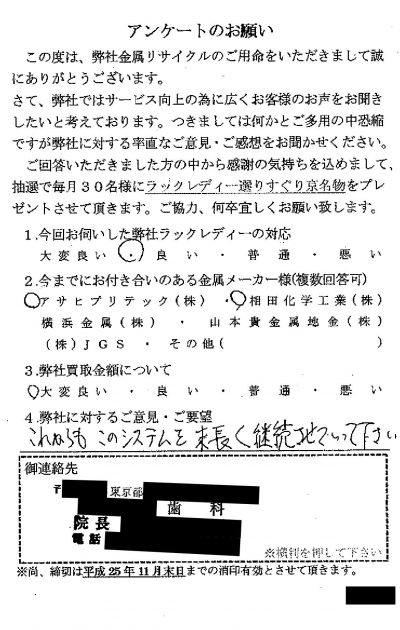 アンケートのお願い
この度は、弊社金属リサイクルのご用命をいただきまして誠
にありがとうございます。
さて、弊社ではサービス向上の為に広くお客様のお声をお聞き
したいと考えております。つきましては何かとご多用の中恐縮
ですが弊社に対する率直なご意見・ご感想をお聞かせください。
ご回答いただきました方の中から感謝の気持ちを込めまして、
抽選で毎月30名様にラックレディー選りすぐり京名物をプレ
ゼントさせて頂きます。ご協力、何卒宜しくお願い致します。
1.今回お伺いした弊社ラックレディーの対応
大変良い ・ 良い ・ 普通 ・ 悪い
2.今までにお付き合いのある金属メーカー様(複数回答可)
アサヒプリテック(株) ・ 相田化学工業(株)
横浜金属(株) ・ 山本貴金属地金(株)
(株)JGS ・ その他( )
3.弊社買取金額について
大変良い ・ 良い ・ 普通 ・ 悪い
4.弊社に対するご意見・ご要望
これからも このシステムを 末長く継続させていって下さい
御連絡先
〒 東京都
歯科
院長
電話
※横判を押して下さい
※尚、締切は平成25年11月末日までの消印有効とさせて頂きます。